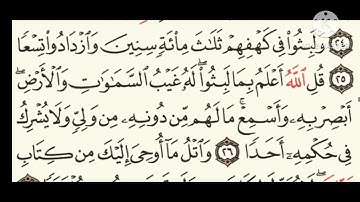 ٢٤ وَلَبِثُوا۟ فِى كَهْفِهِمْ ثَلَٰثَ مِا۟ئَةٍ سِنِينَ وَٱزْدَادُوا۟ تِسْعًا
٢٥ قُلِ ٱللَّهُ أَعْلَمُ بِمَا لَبِثُوا۟ ۖ لَهُۥ غَيْبُ ٱلسَّمَٰوَٰتِ وَٱلْأَرْضِ ۖ
أَبْصِرْ بِهِۦ وَأَسْمِعْ ۚ مَا لَهُم مِّن دُونِهِۦ مِن وَلِىٍّ وَلَا يُشْرِكُ
فِى حُكْمِهِۦٓ أَحَدًا ٢٦ وَٱتْلُ مَآ أُوحِىَ إِلَيْكَ مِن كِتَابِ